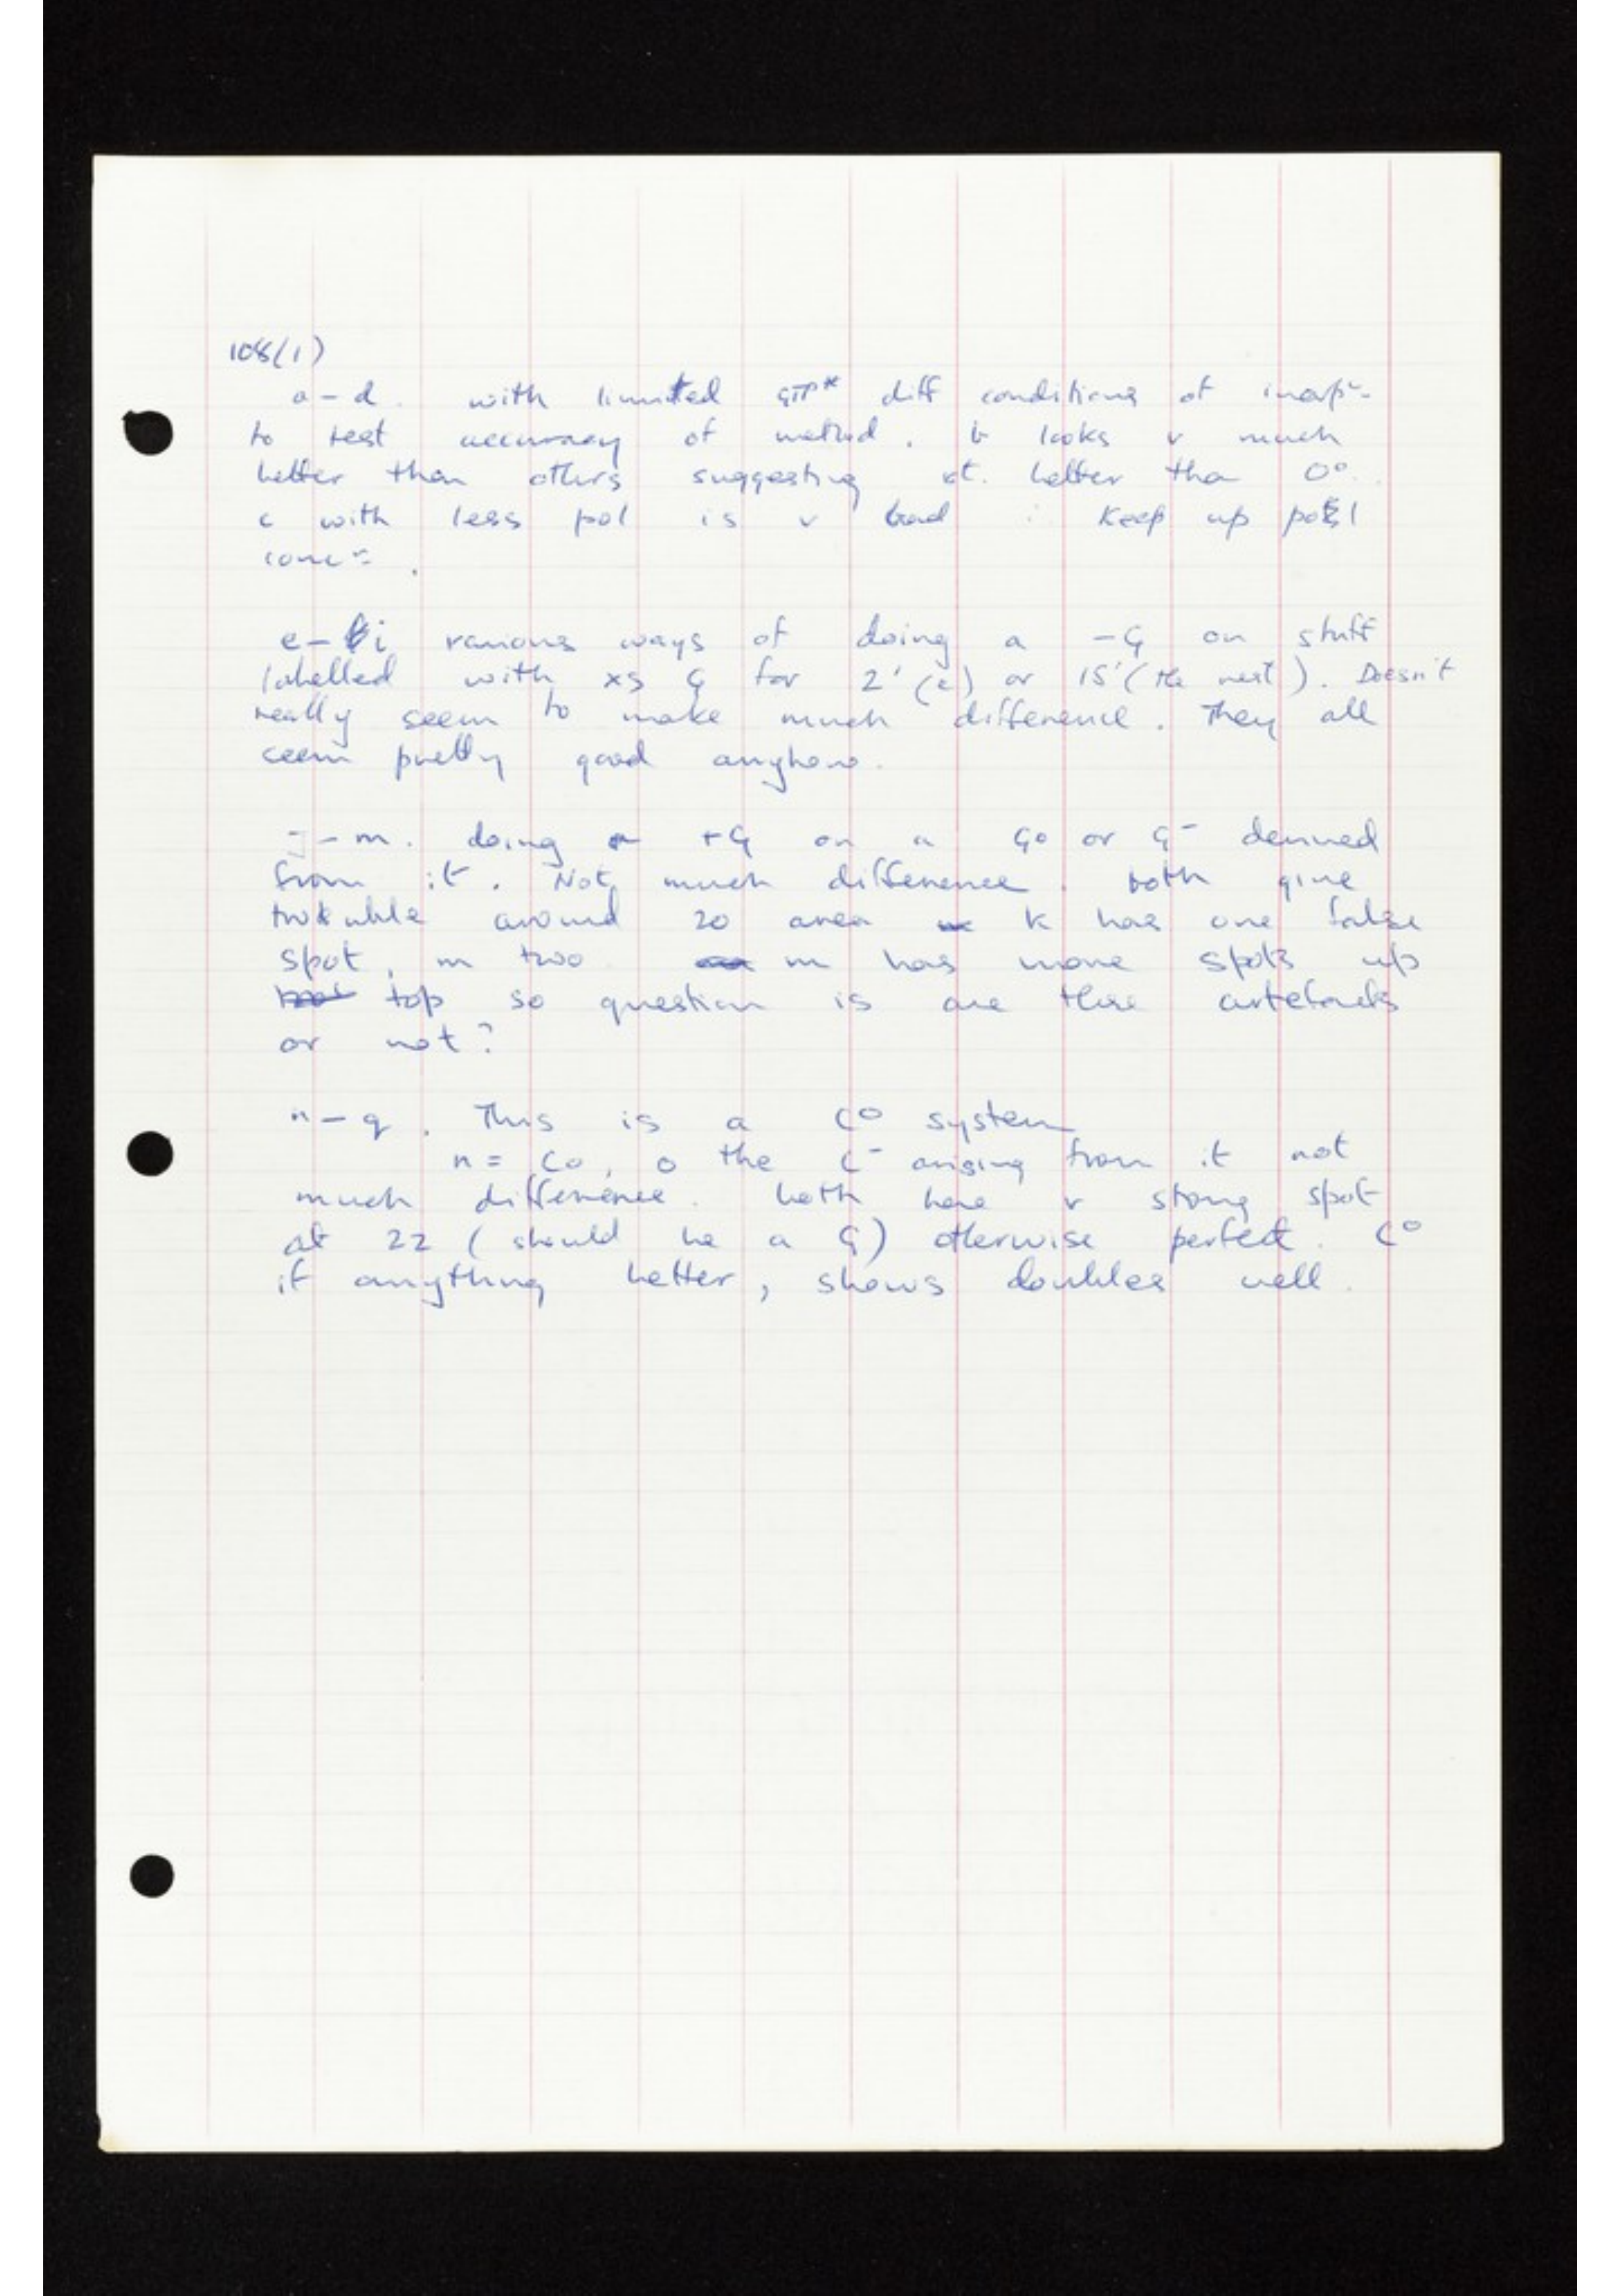 108(1)
a - d. with limited GTP* diff conditions of
to test accuracy of method. b looks v much
better than others suggesting better tha 0°.
c with less pol is v bad ∴ Keep up pol
conc=.
e - i various ways of doing a -G on stuff
labelled with xs G for 2' (e) or 15' (the rest). Doesn't
really seem to make much difference. They all
seem pretty good anyhow.
j - m. doing +G on a G0 or G- derived
from it. Not much difference. both give
trouble around 20 area k has one false
spot, m two m has more spots up
top so question is are these artefacts
or not?
n - q. This is a C° system
n = C0, o the C- arising from it not
much difference. both have v strong spot
at 22 (should be a G) otherwise perfect. C°
if anything better, shows doubles well.